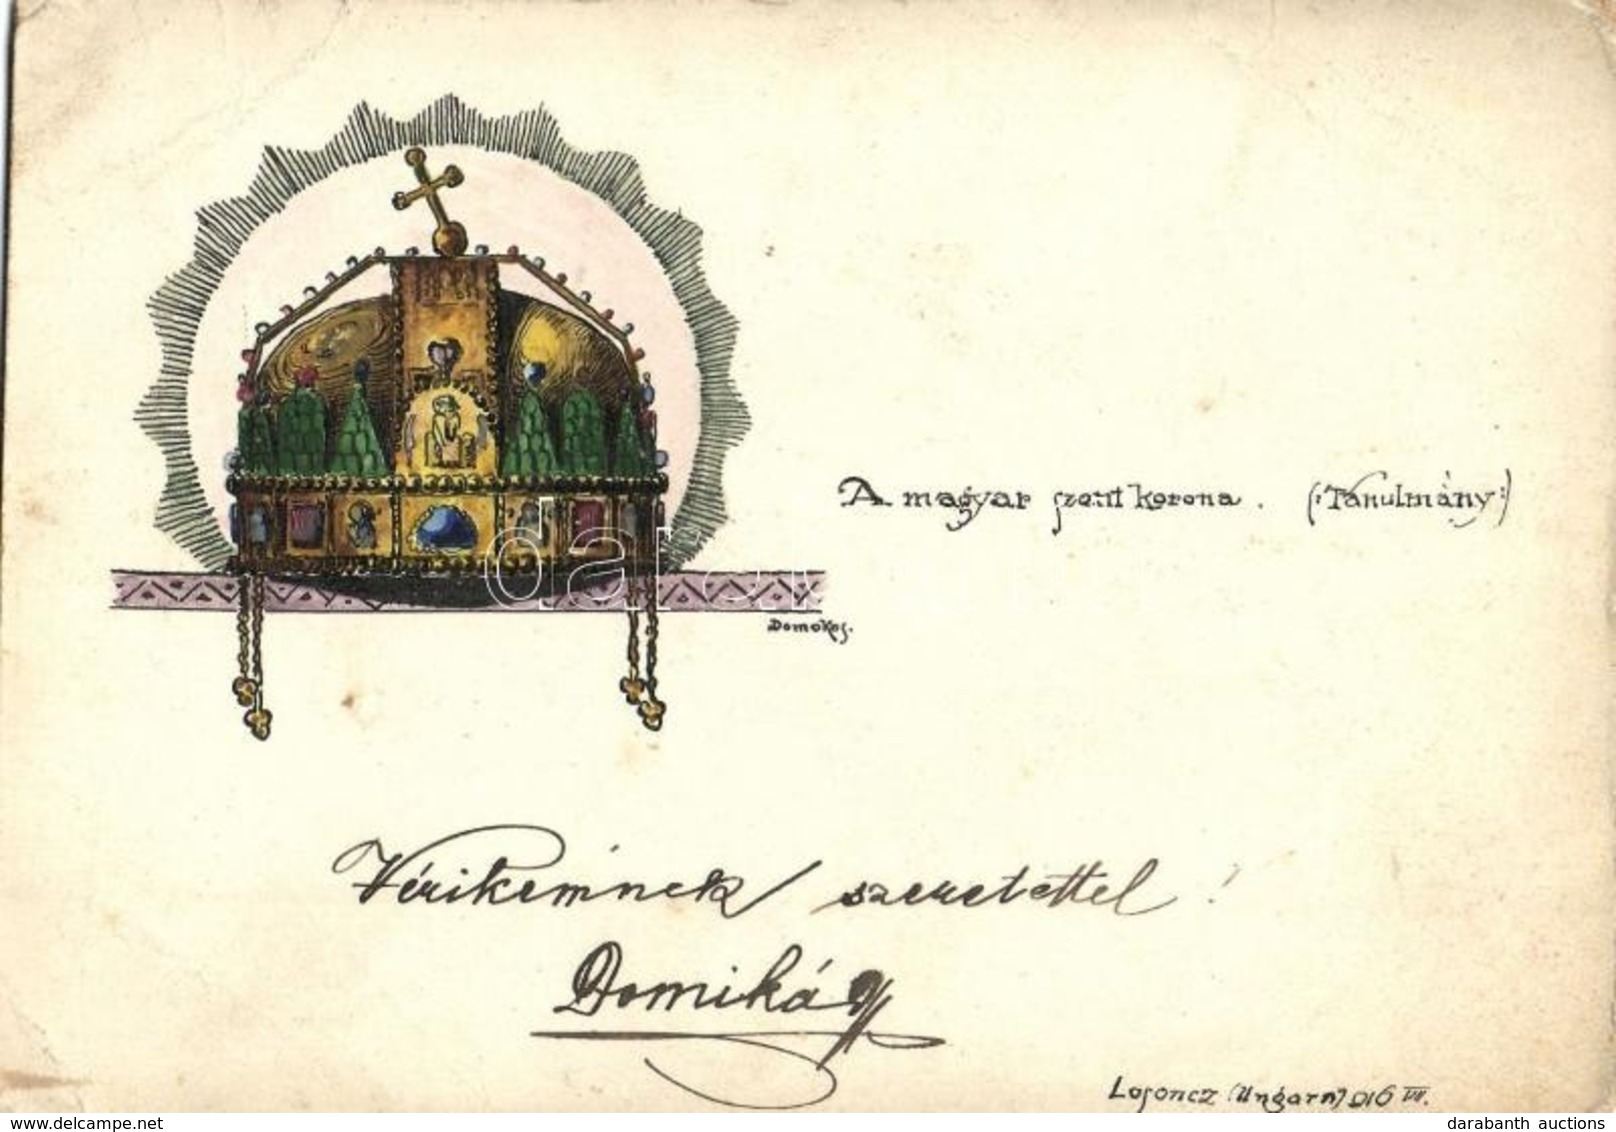 A magyar szent korona. (:Tanulmány:)
Domokos.
Vérikémnek szeretettel!
Domikád
Losoncz (Ungarn) 916 VII.
delcampe.net
darabanth auctions